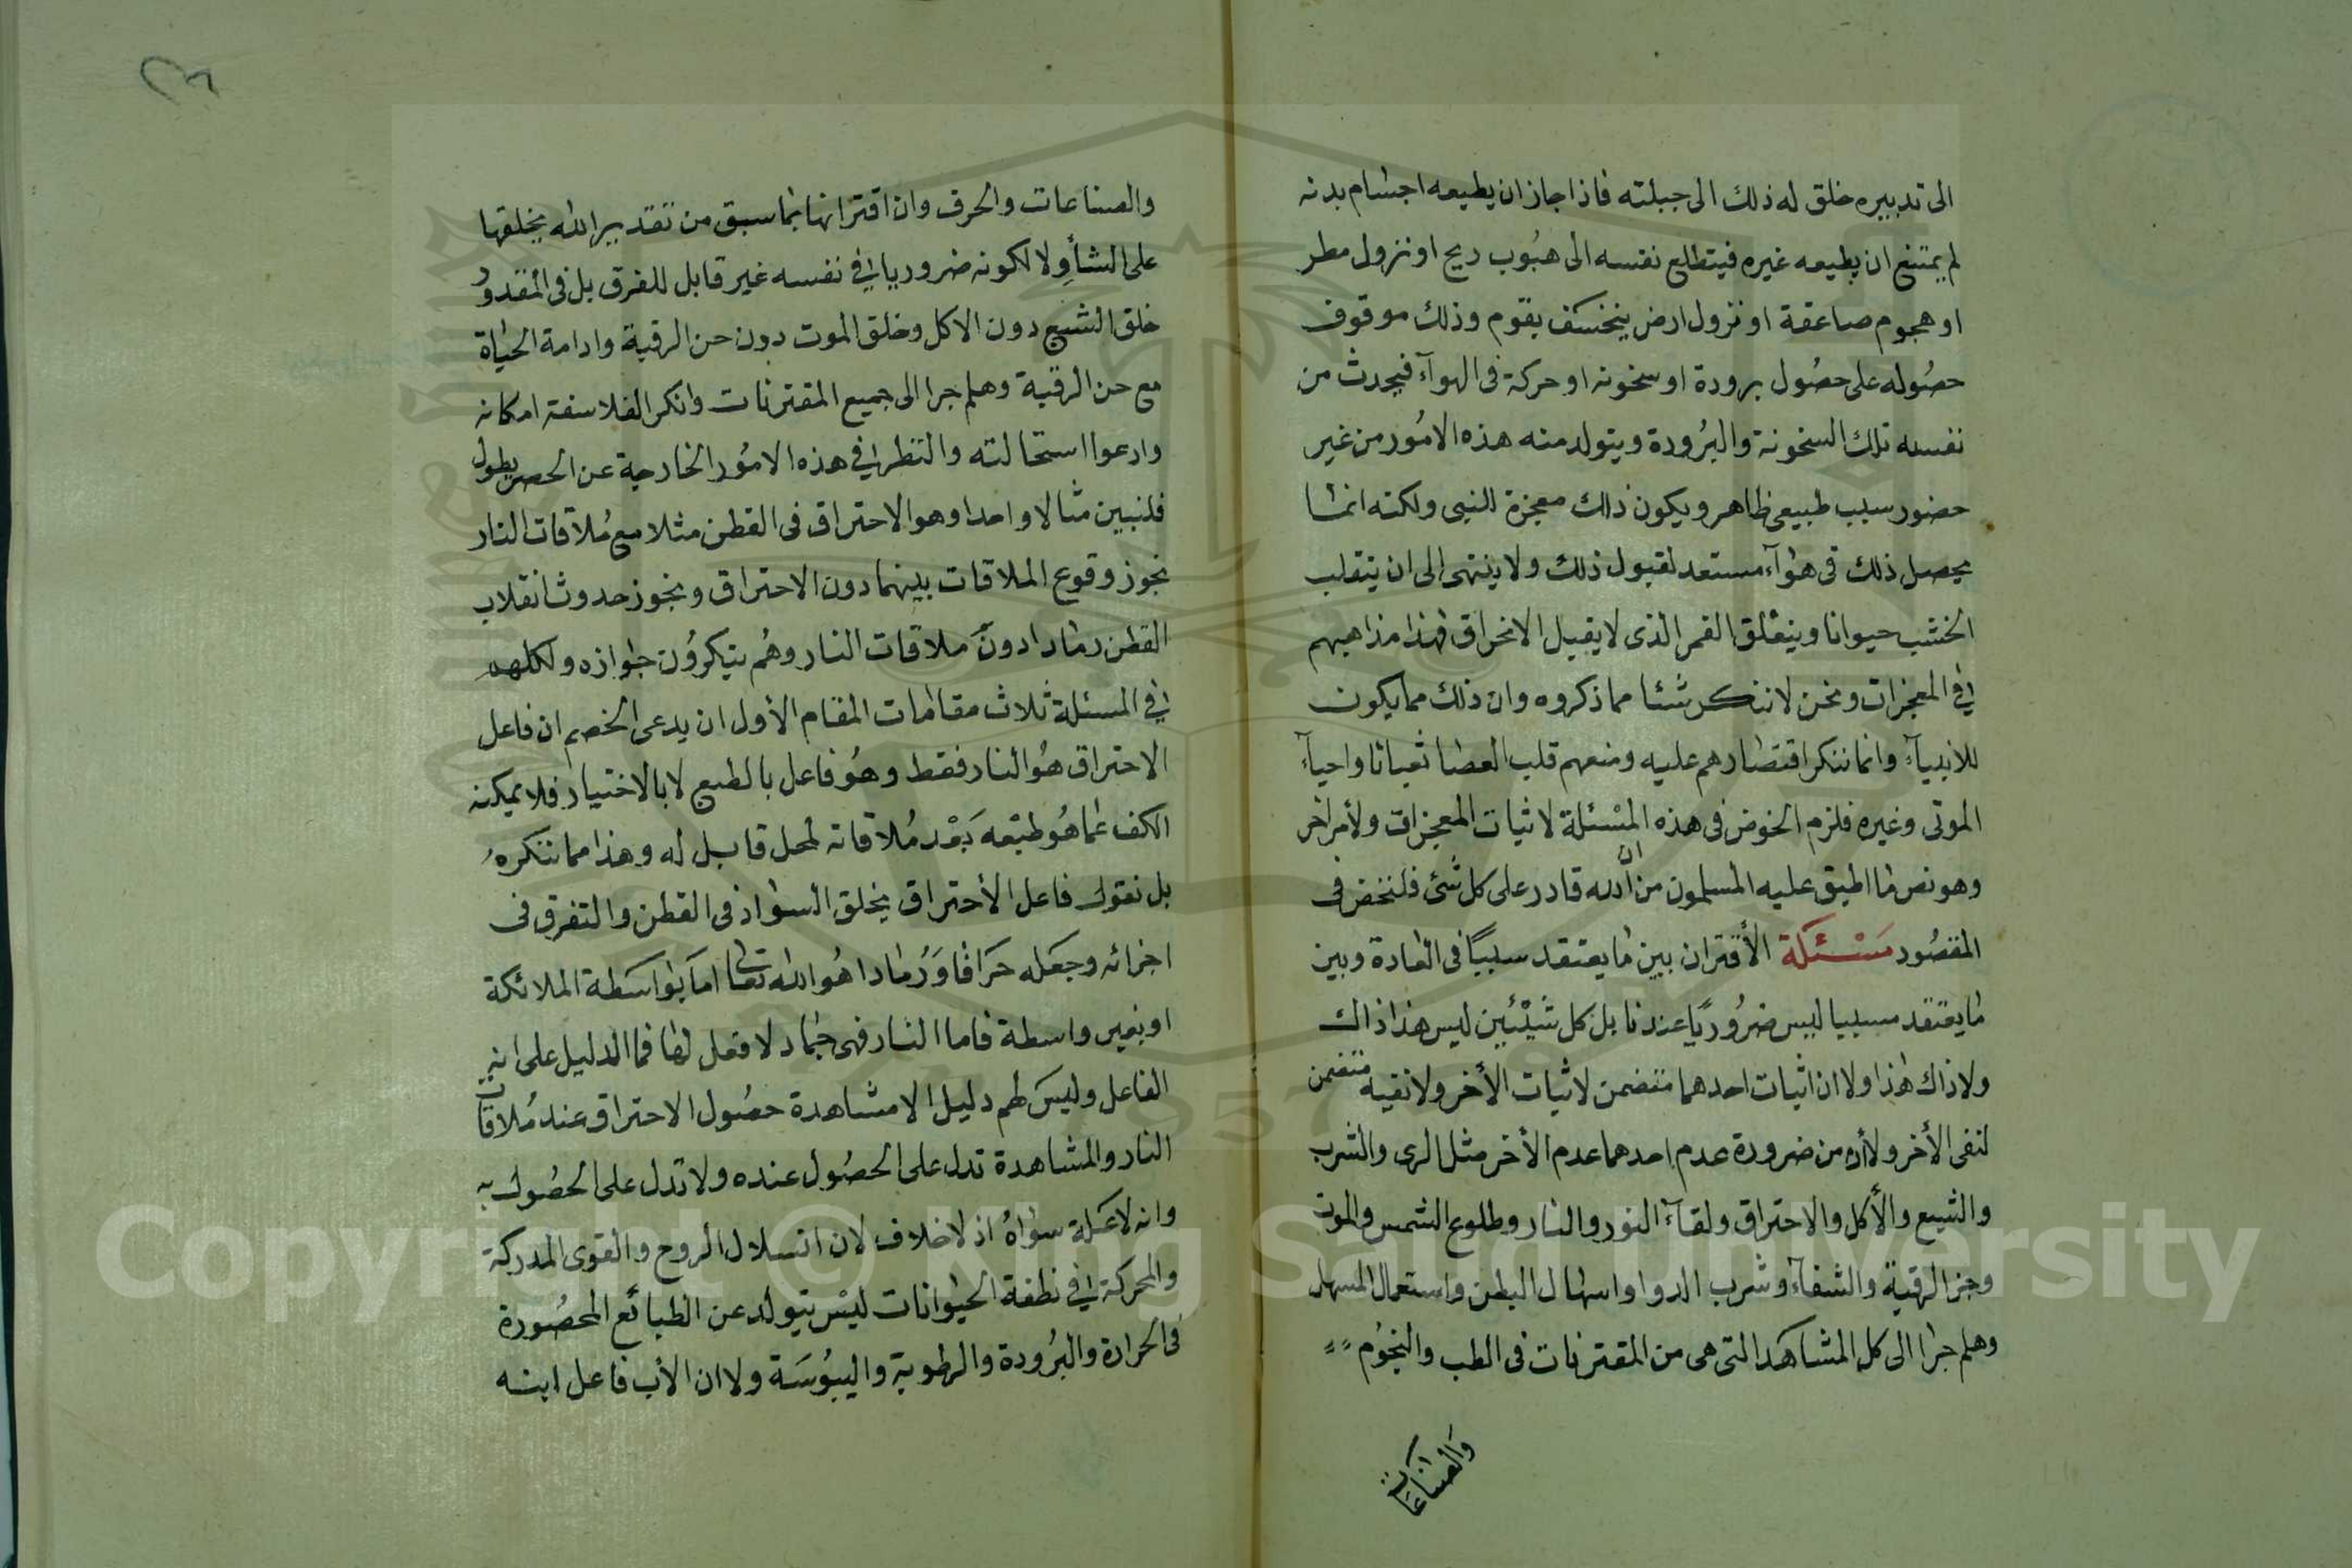 الى تدبيره خلق له ذلك الى جبلته فاذا جاز ان يطيعه اجسام بدنه
لم يمتنع ان يطيعه غيره فيتطلع نفسه الى هبُوب ريح او نزول مطر
او هجوم صاعقة او تزول ارض ينخسف بقوم وذلك موقوف
حصُوله على حصُول برودة او سخونه او حركة فى الهوآء فيحدث من
نفسه تلك السخونة والبرُودة ويتولد منه هذه الامُور من غير
حضور سبب طبيعى ظاهر ويكون ذلك معجزة للنبى ولكنه انما
يحصل ذلك فى هوآء مستعد لقبول ذلك ولا ينتهى الى ان ينقلب
الخشب حيوانا وينفلق القمر الذى لا يقبل الانخراق فهذا مذاهبهم
فى المعجزات ونحن لا ننكر شئا مما ذكروه وان ذلك مما يكون
للانبيآء وانما ننكر اقتصارهم عليه ومنعهم قلب العصا ثعبانا واحيآء
الموتى وغيره فلزم الخوض فى هذه المسْئلة لاثبات المعجزات ولأمر اخر
وهو نص ما اطبق عليه المسلمون من ان الله قادر على كل شئ فلنخض فى
المقصُود مَسْئَلَة الأقتران بين ما يعتقد سببًا فى العادة وبين
ما يعتقد مسببا ليس ضرُوريًا عندنا بل كل شيْئين ليس هذا ذاك
ولا ذاك هذا ولا ان اثبات احدهما متضمن لاثبات الأخر ولا نفيه متضمن
لنفى الأخر ولا من ضرورة عدم احدهما عدم الأخر مثل الرى والشرب
والشبع والأكل والاحتراق ولقآء النور والنار وطلوع الشمس والموت
وجز الرقبة والشفآء وشرب الدوا واسهال البطن واستعمال المسهل
وهلم جرا الى كل المشاهد التى هى من المقترنات فى الطب والنجُوم
وَالصناعَات
والصناعات والحرف وان اقترانها بما سبق من تقدير الله يخلقها
على الشأوِ لا لكونه ضروريا فى نفسه غير قابل للفرق بل فى المقدور
خلق الشبع دون الاكل وخلق الموت دون حز الرقبة وادامة الحياة
مع حز الرقبة وهلم جرا الى جميع المقترنات وانكر الفلاسفة امكانه
وادعوا استحالته والنظر فى هذه الامُور الخارجة عن الحصر يطول
فلنبين مثالا واحدا وهو الاحتراق فى القطن مثلا مع مُلاقات النار
نجوز وقوع الملاقات بينهما دون الاحتراق ونجوز حدوث انقلاب
القطن رمادا دون ملاقات النار وهُم ينكرُون جوازه وللكلام
فى المسئلة ثلاث مقامات المقام الأول ان يدعى الخصم ان فاعل
الاحتراق هُو النار فقط وهُو فاعل بالطبع لا بالاختيار فلا يمكنه
الكف عما هُو طبْعه بَعْد مُلاقاته لمحل قابل له وهذا مما ننكرهُ
بل نقول فاعل الأحتراق يخلق السواد فى القطن والتفرق فى
اجزائه وجعَله حَرَاقا وَرُمادا هُو الله تعالى اما بوَاسَطة الملائكة
او بغير واسطة فاما النار فهى جماد لا فعل لها فما الدليل على انه
الفاعل وليسَ لهم دليل الا مشاهدة حصُول الاحتراق عند مُلاقات
النار والمشاهدة تدل على الحصُول عنده ولا تدل على الحصُول به
وانه لا عَلة سواهُ اذ لا خلاف لان انسلال الروح والقوى المدركة
والمحركة فى نطفة الحيوانات ليسْ يتولد عن الطبائع المحصُورة
فى الحرارة والبرُودة والرطوبة واليبُوسَة ولا ان الأب فاعل ابنه